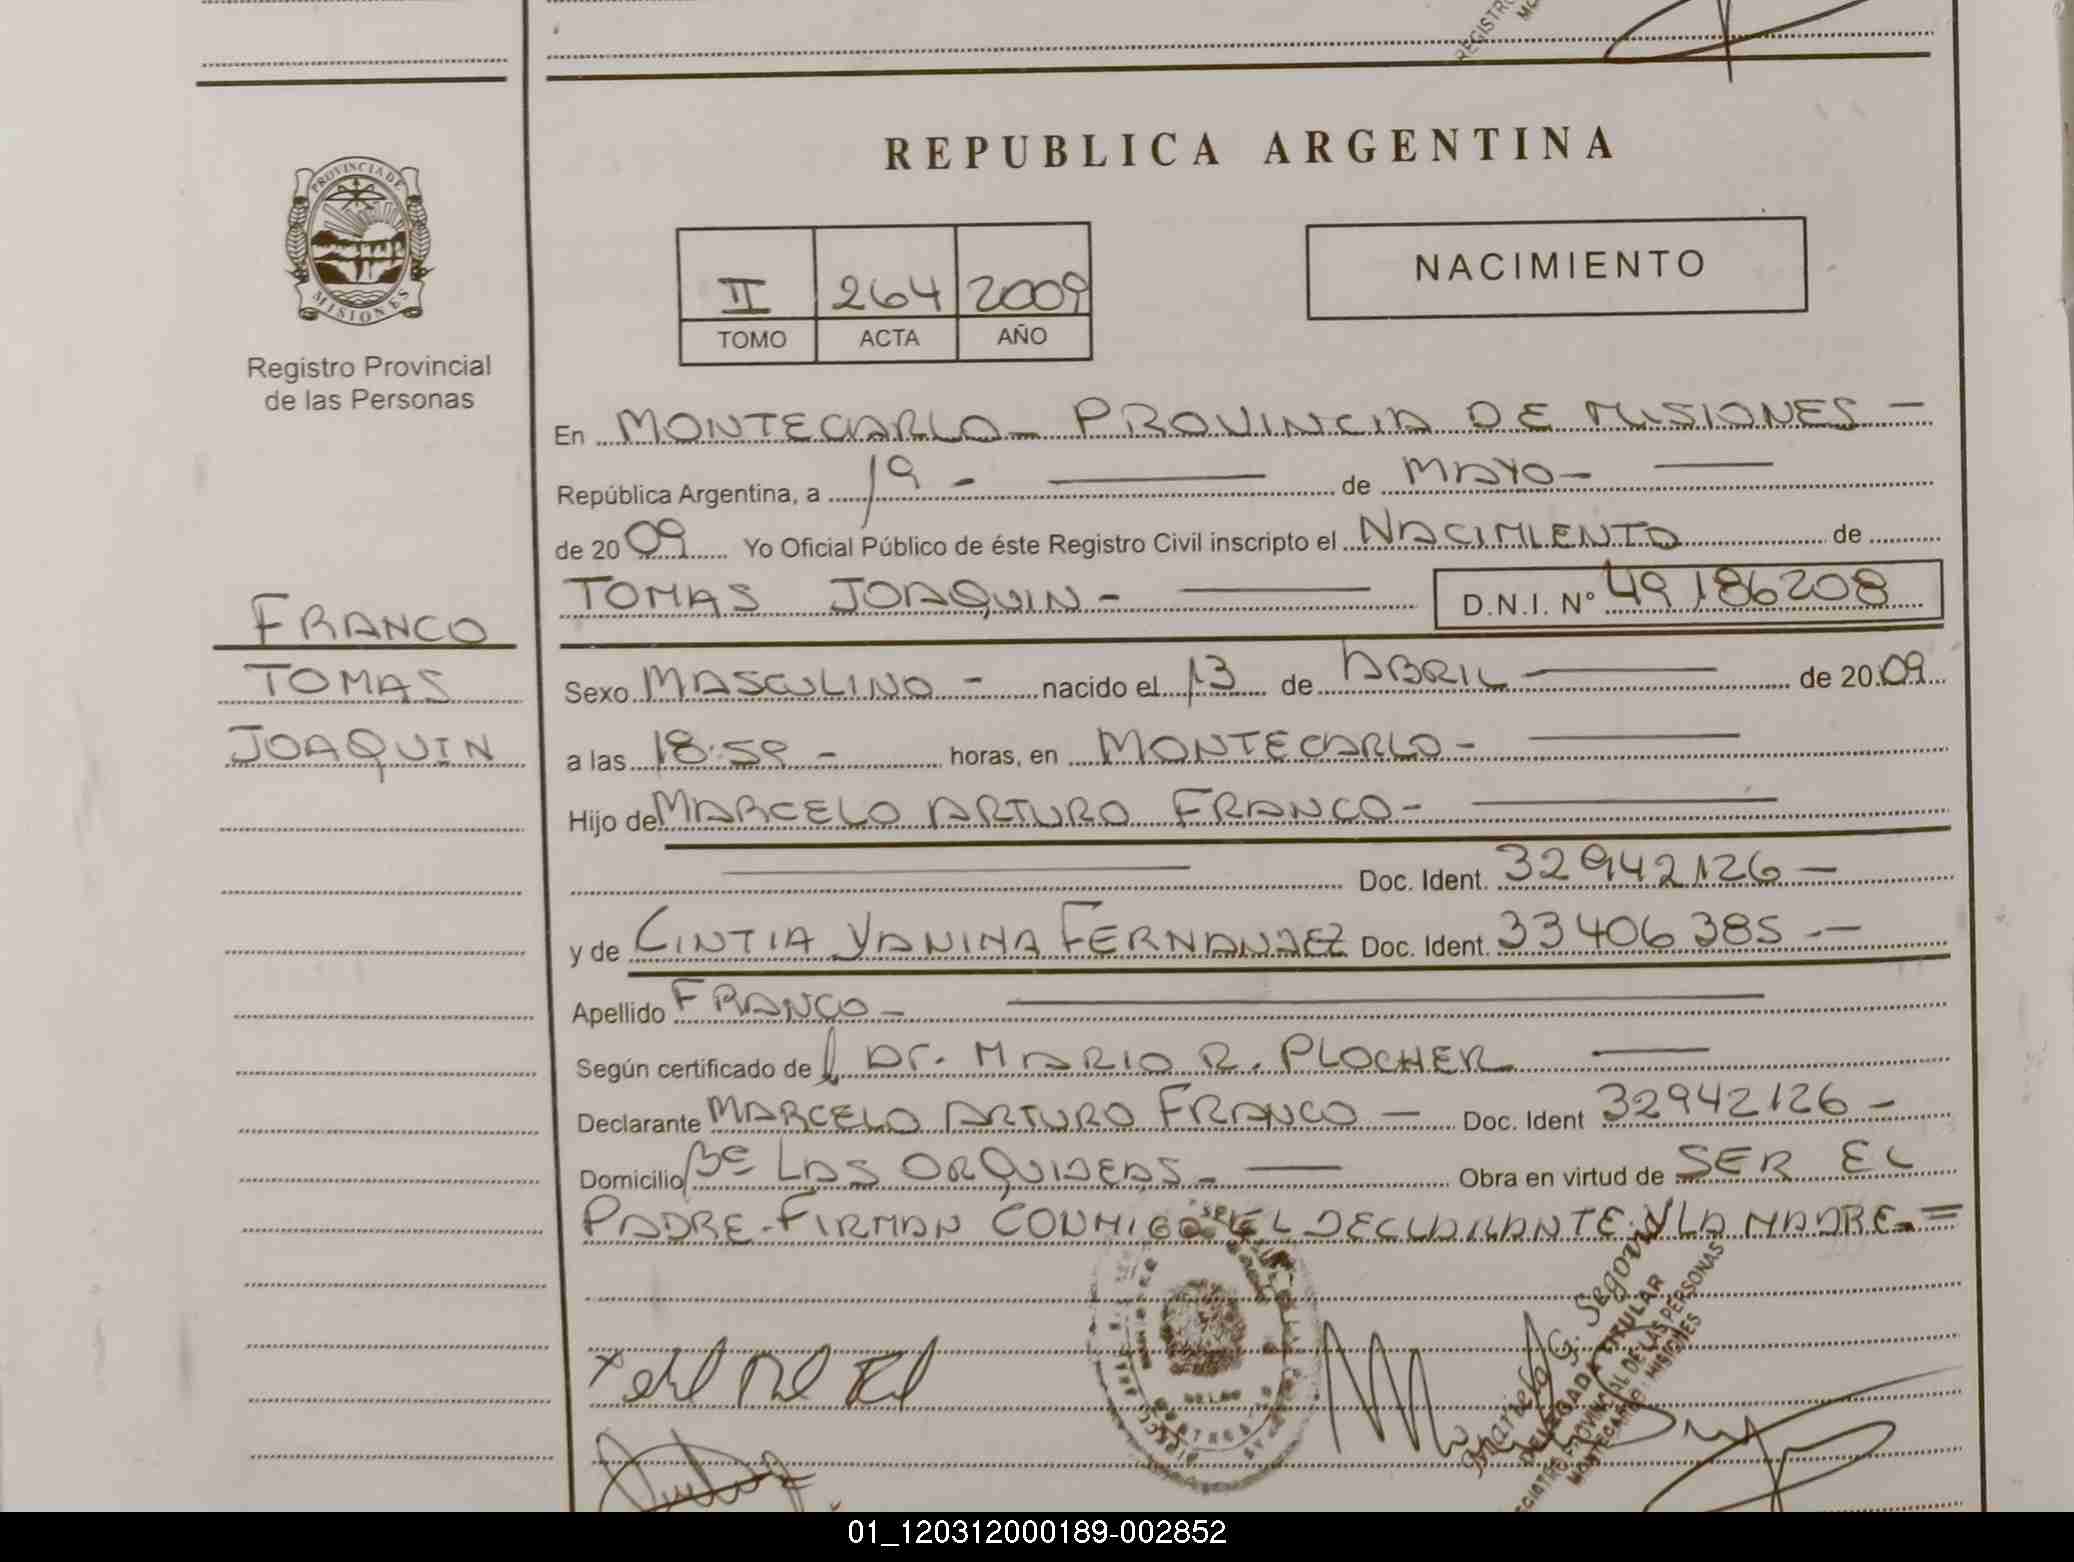 REGISTRO
REPUBLICA ARGENTINA
PROVINCIA DE
MISIONES
Registro Provincial
de las Personas
NACIMIENTO
II 264 2009
TOMO ACTA AÑO
En MONTECARLO - PROVINCIA DE MISIONES -
República Argentina, a 19 - de MAYO -
de 2009 Yo Oficial Público de éste Registro Civil inscripto el NACIMIENTO de
TOMAS JOAQUIN - D.N.I. Nº 49186208
FRANCO
TOMAS
JOAQUIN
Sexo MASCULINO - nacido el 13 de ABRIL de 2009
a las 18:59 - horas, en MONTECARLO -
Hijo de MARCELO ARTURO FRANCO -
Doc. Ident. 32942126 -
y de CINTIA YANINA FERNANDEZ Doc. Ident. 33406385 -
Apellido FRANCO -
Según certificado de Dr. MARIO R. PLOCHER
Declarante MARCELO ARTURO FRANCO - Doc. Ident 32942126 -
Domicilio Bº LAS ORQUIDEAS - Obra en virtud de SER EL
PADRE - FIRMAN CONMIGO EL DECLARANTE Y LA MADRE - =
Mariela G. Segovia
DELEGADA TITULAR
REGISTRO PROVINCIAL DE LAS PERSONAS
MONTECARLO - MISIONES
01_120312000189-002852